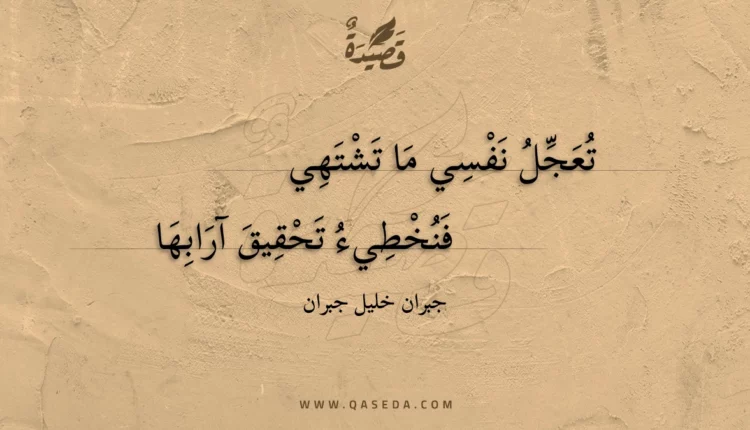 قَصِيْدَةٌ
تُعَجِّلُ نَفْسِي مَا تَشْتَهِي
فَنُخْطِيءُ تَحْقِيقَ آرَابِهَا
جبران خليل جبران
WWW.QASEDA.COM